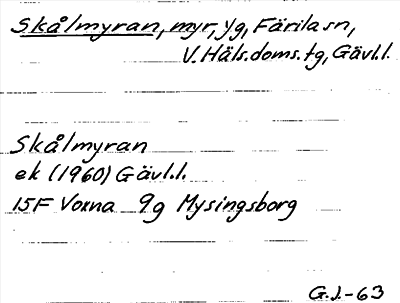 Skålmyran, myr, Yg, Färila sn,
V. Häls. doms. tg, Gävl.l.
Skålmyran
ek (1960) Gävl.l.
15F Voxna 9g Mysingsborg
G.J.-63